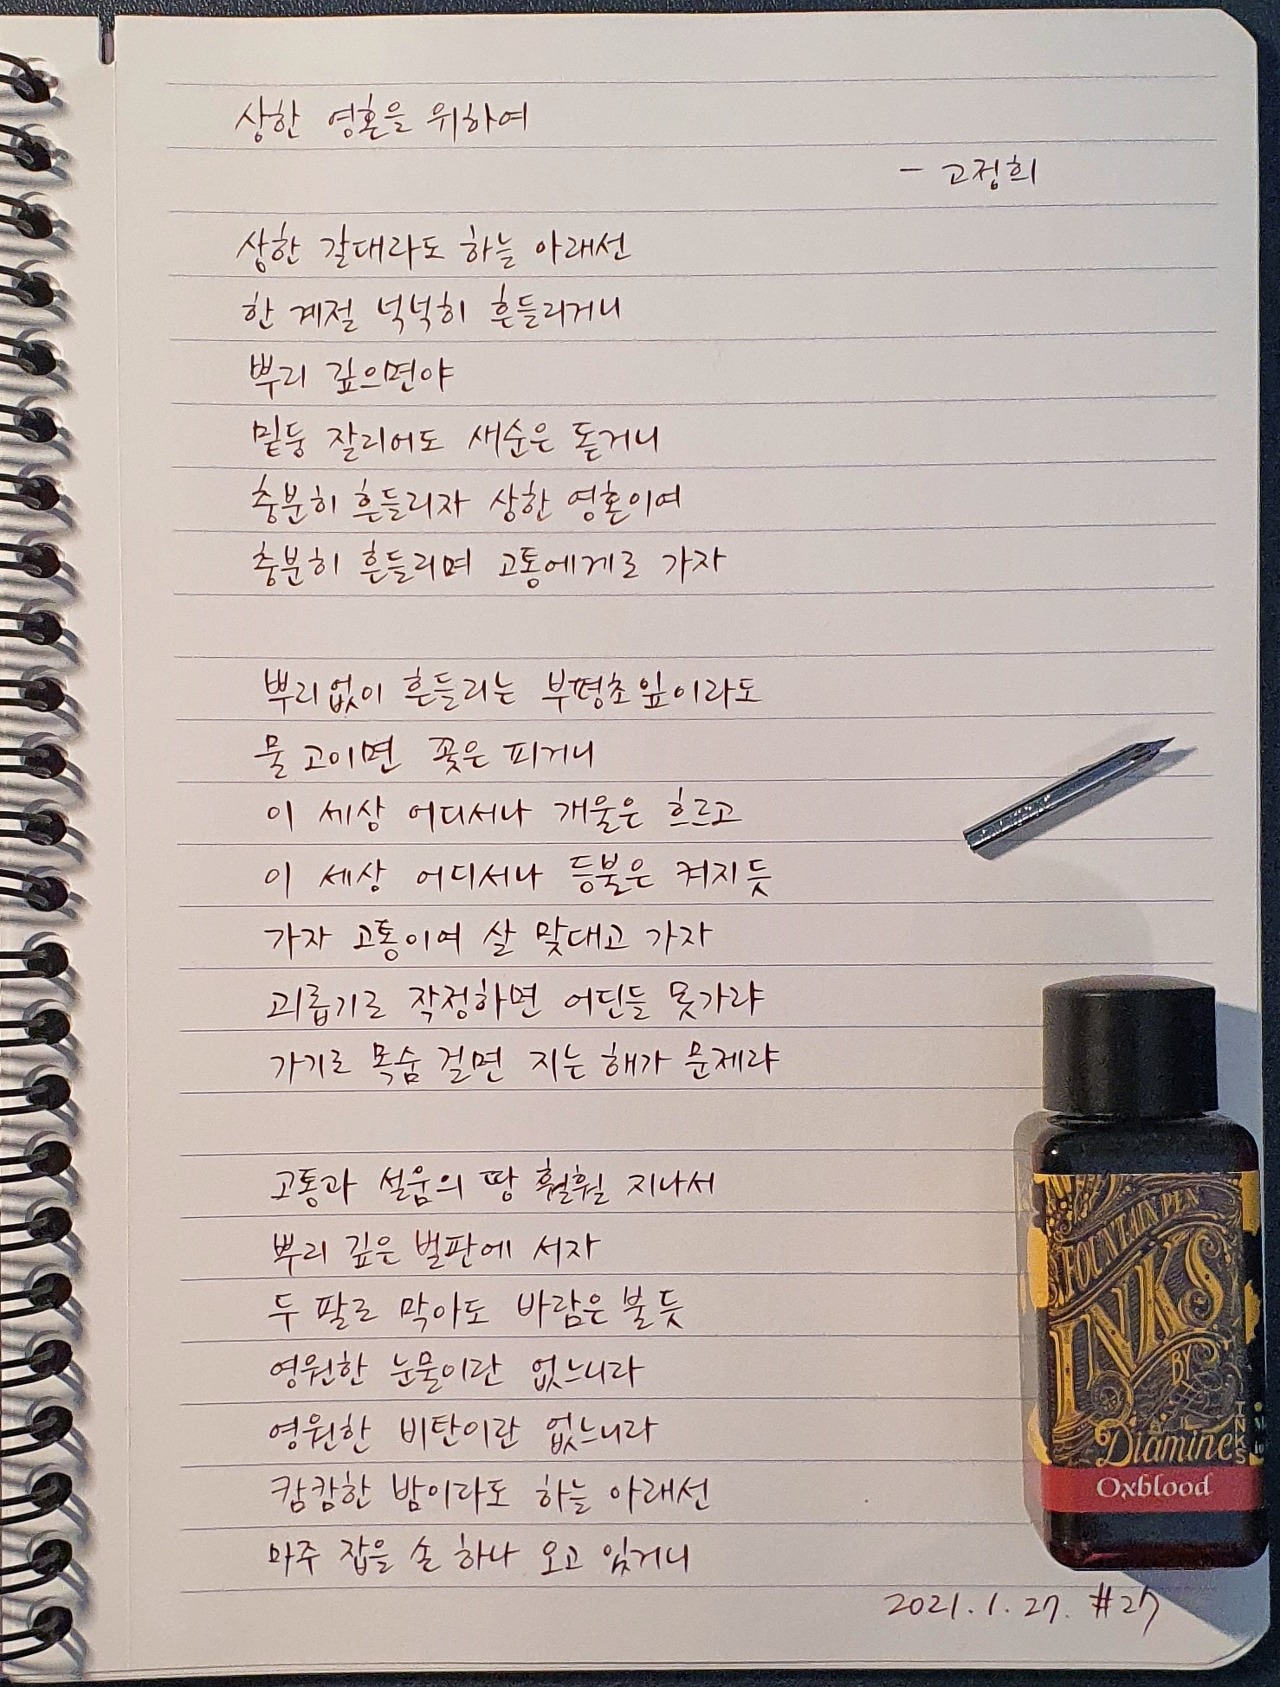 상한 영혼을 위하여
- 고정희
상한 갈대라도 하늘 아래선
한 계절 넉넉히 흔들리거니
뿌리 깊으면야
밑둥 잘리어도 새순은 돋거니
충분히 흔들리자 상한 영혼이여
충분히 흔들리며 고통에게로 가자
뿌리없이 흔들리는 부평초잎이라도
물 고이면 꽃은 피거니
이 세상 어디서나 개울은 흐르고
이 세상 어디서나 등불은 켜지듯
가자 고통이여 살 맞대고 가자
괴롭기로 작정하면 어딘들 못가랴
가기로 목숨 걸면 지는 해가 문제랴
고통과 설움의 땅 훨훨 지나서
뿌리 깊은 벌판에 서자
두 팔로 막아도 바람은 불듯
영원한 눈물이란 없느니라
영원한 비탄이란 없느니라
캄캄한 밤이라도 하늘 아래선
마주 잡을 손 하나 오고 있거니
2021.1.27. #27
FOUNTAIN PEN
INKS
BY
Diamine
Oxblood
INKS